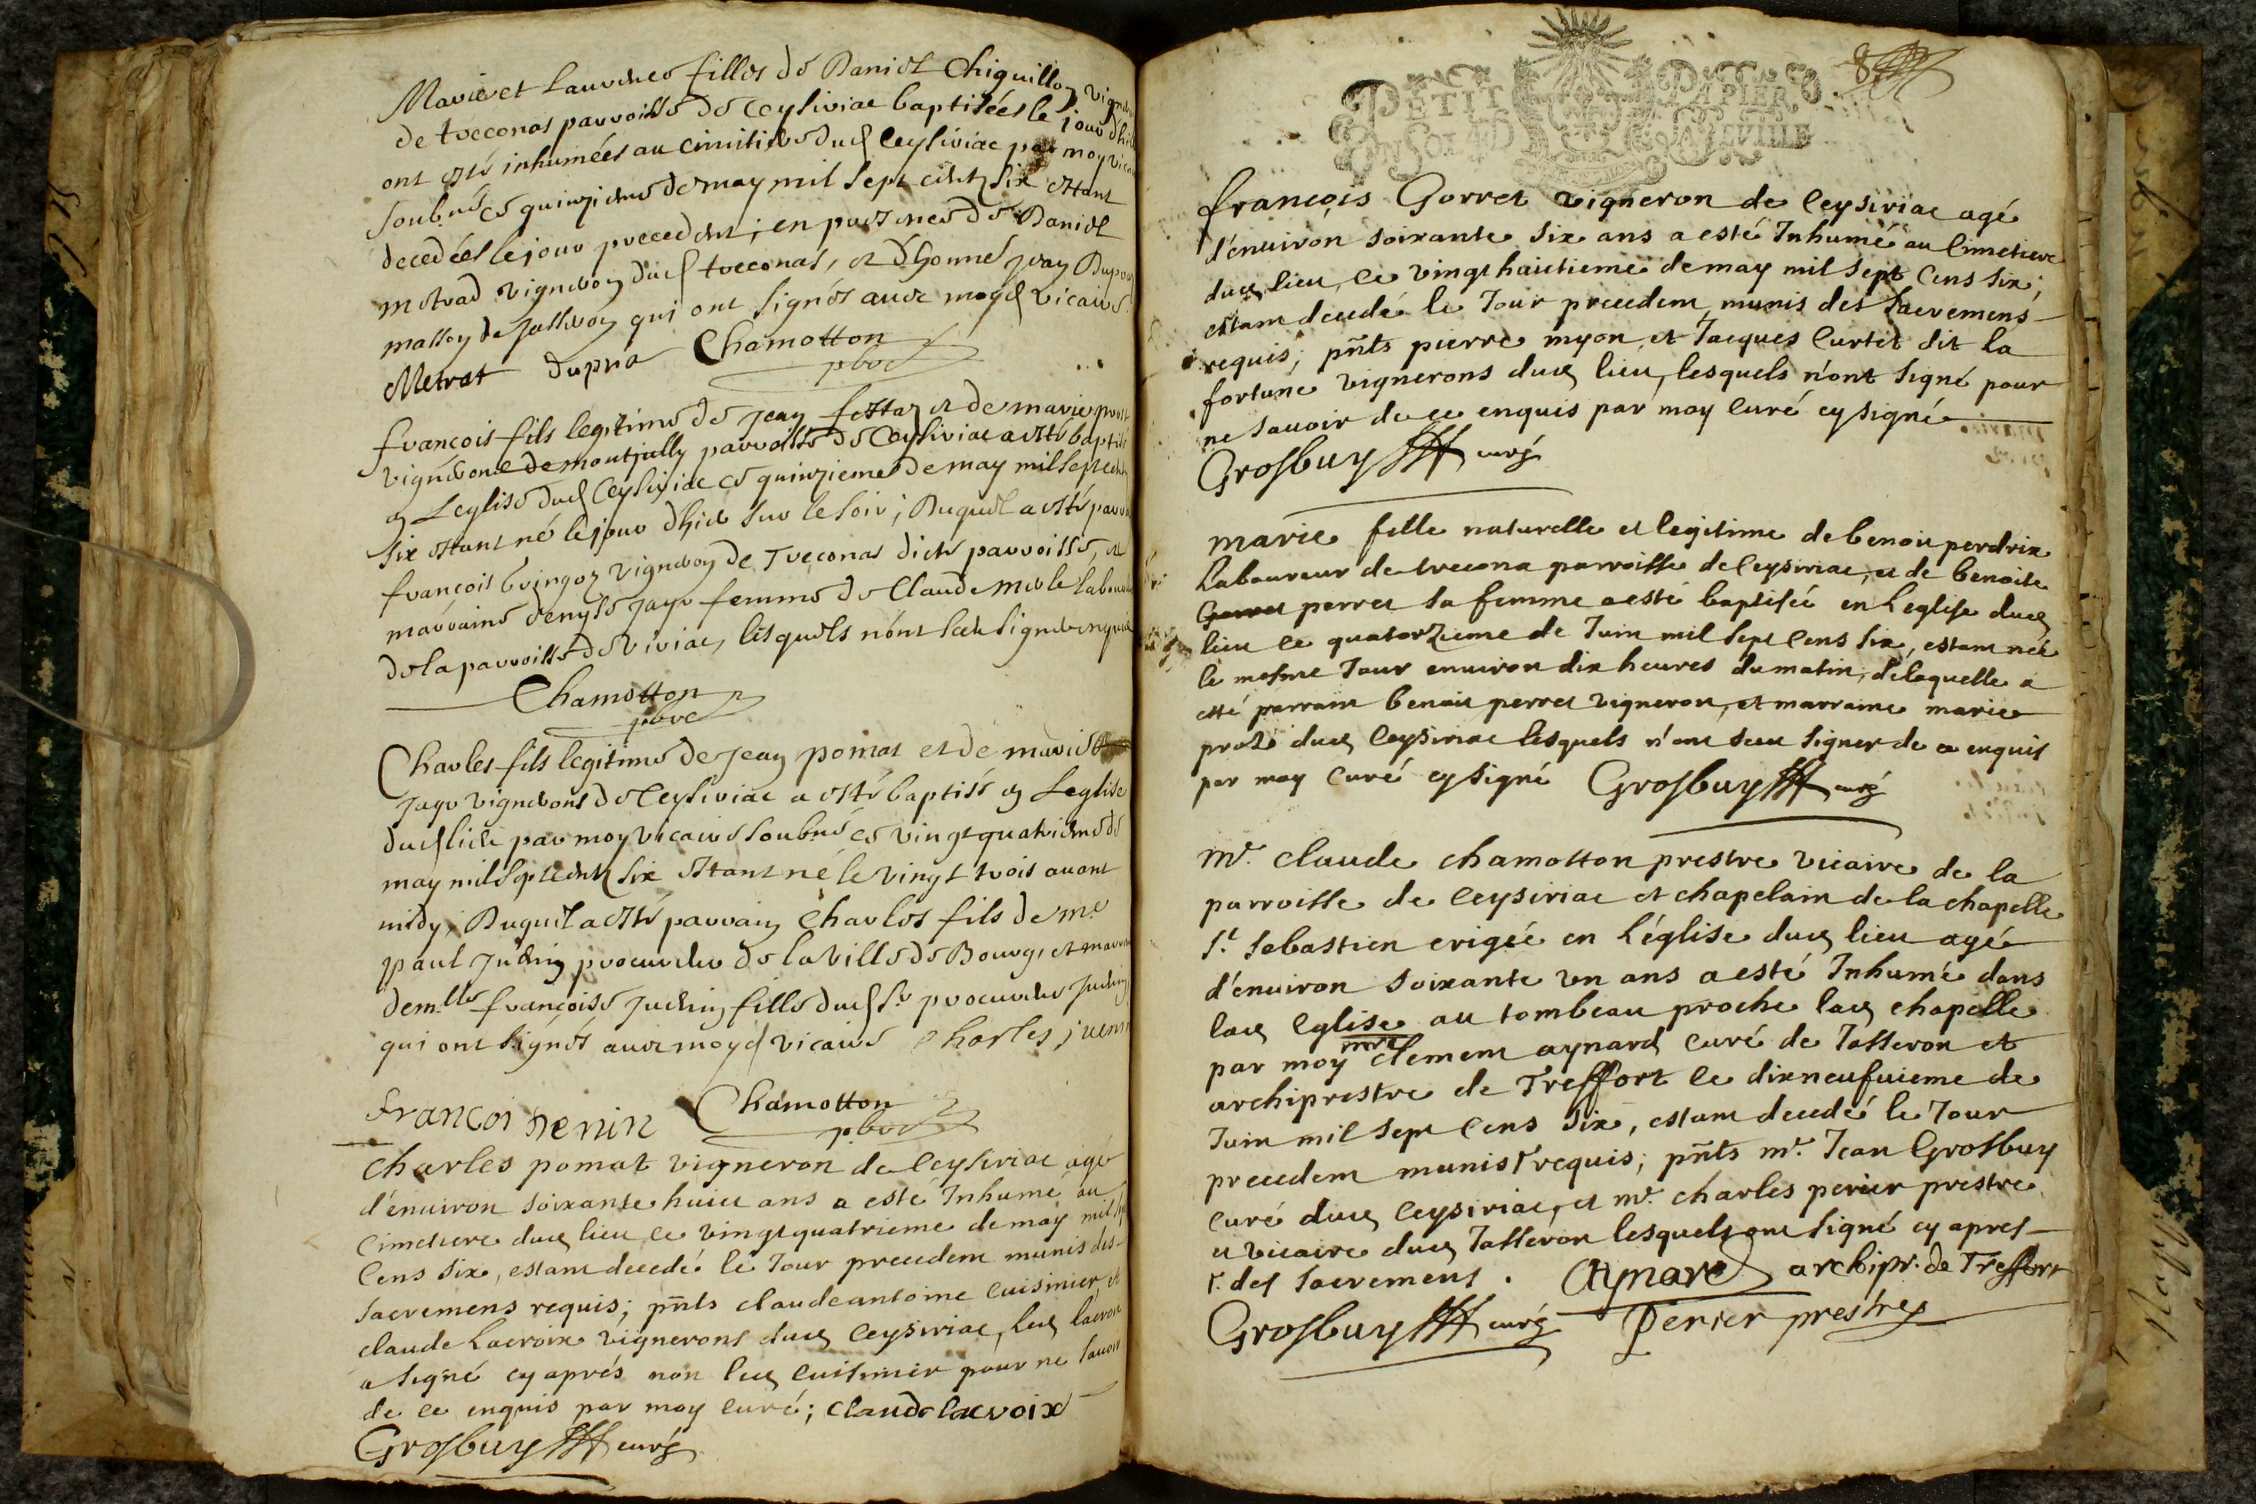 Marie et Laurence filles de Daniel Chiquillon
de treconas parroisse de Ceysiriac baptisées le jour d'hier
ont esté inhumées au cimitiere dud Ceysiriac par moy vicaire
soubné ce quinzieme de may mil sept cents six estant
decedées le jour precedent; en presence de Daniel
metrad vigneron dud treconas, et d'honne jean
de Jasseron qui ont signés avec moyd vicaire
Metrat dupra Chamotton
pbre
françois fils legitime de jean et de marie
vignerons de montjully parroisse de Ceysiriac a esté baptisé
en Leglise dud Ceysiriac ce quinzieme de may mil sept cents
six estant né le jour d'hier sur le soir; Duquel a esté parrain
françois vigneron de Treconas dicte parroisse, et
marraine denyse jayr femme de Claude
de la parroisse de viriac, lesquels n'ont sceu signer
Chamotton
pbre
Charles fils legitime de jean pomat et de marie
jayr vignerons de Ceysiriac a esté baptisé en Leglise
dud lieu par moy vicaire soubné ce vingt quatrieme de
may mil sept cents six estant né le vingt trois avant
midy, Duquel a esté parrain Charles fils de me
paul juenin procureur de la ville de Bourg, et marraine
demlle françoise juenin fille dud sr procureur juenin
qui ont signés avec moyd vicaire Charles juenin
francoi Chamotton
pbre
Charles pomat vigneron de Ceysiriac agé
d'enuiron soixante huict ans a esté Inhumé au
Cimetiere dud lieu ce vingt quatrieme de may mil sept
Cens six, estant decedé le Jour precedent munis des
sacremens requis; pnts claude antoine Cuisinier, et
claude Lacroix vignerons dud Ceysiriac, led lacroix
a signé cy aprés non led cuisinier pour ne sauoir
de ce enquis par moy Curé; Claude lacroix
Grosbuy curé
PETIT PAPIER
françois Gorret vigneron de Ceysiriac agé
d'enuiron soixante six ans a esté Inhumé au Cimetiere
dud lieu, ce vingt huictieme de may mil sept Cens six;
estant decedé le Jour precedent, munis des sacremens
requis; pnts pierre myon et Jacques Curtet dit la
fortune vignerons dud lieu, lesquels n'ont signé pour
ne sauoir de ce enquis par moy Curé cy signé
Grosbuy curé
marie fille naturelle et legitime de benoit perdrix
Laboureur de trecona parroisse de Ceysiriac, et de benoite
perret sa femme a esté baptisée en L'eglise dud
lieu ce quatorzieme de Juin mil sept Cens six, estant née
le mesme Jour enuiron dix heures du matin, de laquelle a
esté parrain benoit perret vigneron, et marraine marie
dud Ceysiriac lesquels n'ont sceu signer de ce enquis
par moy Curé cy signé Grosbuy curé
mr. claude chamotton prestre vicaire de la
parroisse de Ceysiriac et chapelain de la chapelle
St. Sebastien erigée en L'église dud lieu agé
d'enuiron soixante un ans a esté Inhumé dans
lad Eglise au tombeau proche lad chapelle
par moy clement aynard Curé de Jasseron et
archiprestre de Treffort le dixneufuieme de
Juin mil sept Cens six, estant decedé le Jour
precedent munis requis; pnts mr. Jean Grosbuy
Curé dud Ceysiriac, et mr. charles perier prestre
et vicaire dud Jasseron lesquels ont signé cy apres
des sacremens. Aynard archipr. de Treffort
Grosbuy curé Perier prestre